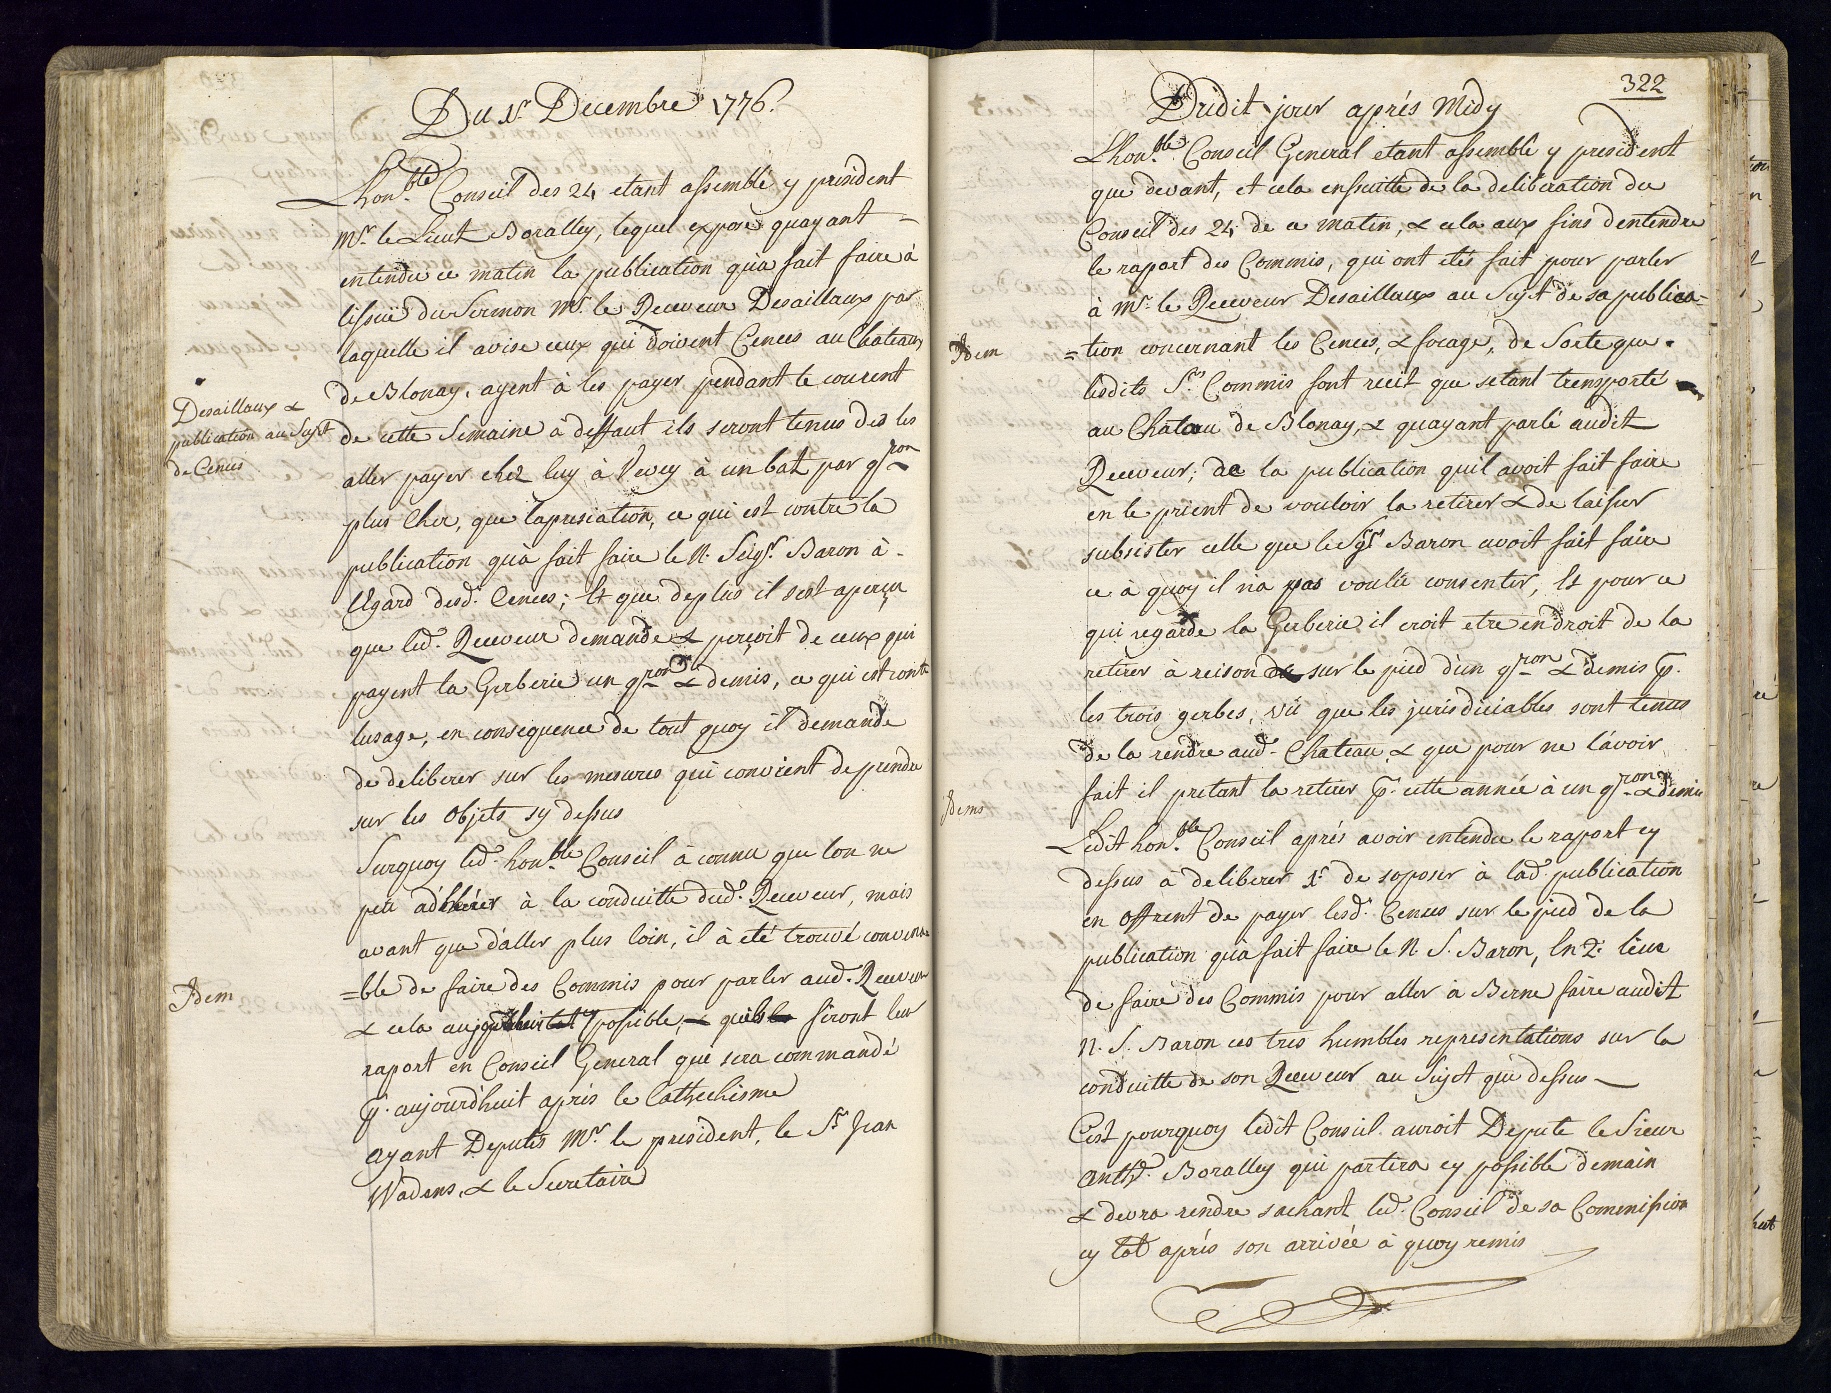 Du 1r. Decembre 1776.
Lhon.ble Conseil des 24 etant assemblé y président
Mr. le Lieut Boralley, lequel expose quayant
entendu ce matin la publication qu'a fait faire à
lissuë du Sermon Mr. le Receveur Desaillaux par
laquelle il avise ceux qui doivent Cences au Chateau
de Blonay, ayent à les payer pendant le courent
Desaillaux &
publication au Sujet
de Cences
de cette Semaine à deffaut ils seront tenus des les
aller payer chez luy à Vevey à un bat par qron
plus Cher, que lapresiation, ce qui est contre la
publication qu'à fait faire le N. Seigr. Baron à
lEgard desd. Cences; Et que deplus il sest aperçu
que led. Receveur demande & perçoit de ceux qui
payent la Gerberie un qron & demis, ce qui est contre
lusage, en consequence de tout quoy il demande
de deliberer sur les mesures qui convient deprendre
sur les Objets sy dessus
Surquoy led. honble Conseil à connu que lon ne
peu adhérer à la conduitte dud. Receveur, mais
avant que d'aller plus loin, il à eté trouvé convena
Idem
=ble de faire des Commis pour parler aud. Receveur
& cela possible, & quils feront leur
raport en Conseil General qui sera commandé
p. aujourd'huit aprés le Cathechisme
ayant Deputés Mr. le president, le Sr. Jean
Wadens, & le Secretaire
322
Dudit jour aprés Midy
Lhon.ble Conseil General etant assemblé y president
que devant, et cela ensuitte de la deliberation du
Conseil des 24 de ce matin, & cela aux fins d'entendre
le raport des Commis, qui ont etés fait pour parler
à Mr. le Receveur Desaillaux au Sujet de sa publica=
Idem
=tion concernant les Cences, & focage, de Sorte que
lesdits Srs. Commis font recit que setant transporté
au Chateau de Blonay, & quayant parlé audit
Receveur; de la publication quil avoit fait faire
en le prient de vouloir la retirer & de laisser
subsister celle que le Sgr Baron avoit fait faire
ce à quoy il n'a pas voulû consentir, Et pour ce
qui regarde la Gerberie il croit etre endroit de la
retirer à reison sur le pied d'un qron & demis p.
les trois gerbes, vû que les jurisdiciables sont tenus
de la rendre aud. Chateau & que pour ne l'avoir
fait il pretant la retirer p. cette année à un qron & demis
Idems
Ledit hon.ble Conseil aprés avoir entendu le raport cy
dessus à deliberer 1r. de soposer à lad. publication
en offrent de payer lesd. Cences sur le pied de la
publication qu'à fait faire le N. S. Baron, En 2. lieu
de faire des Commis pour aller à Berne faire audit
N. S. Baron ces tres humbles representations sur la
conduitte de son Receveur au Sujet que dessus
Cest pourquoy ledit Conseil auroit Deputé le Sieur
Anthe. Boralley qui partira cy possible demain
& devra rendre sachant led. Conseil de sa Commission
cy tot aprés son arrivée à quoy remis